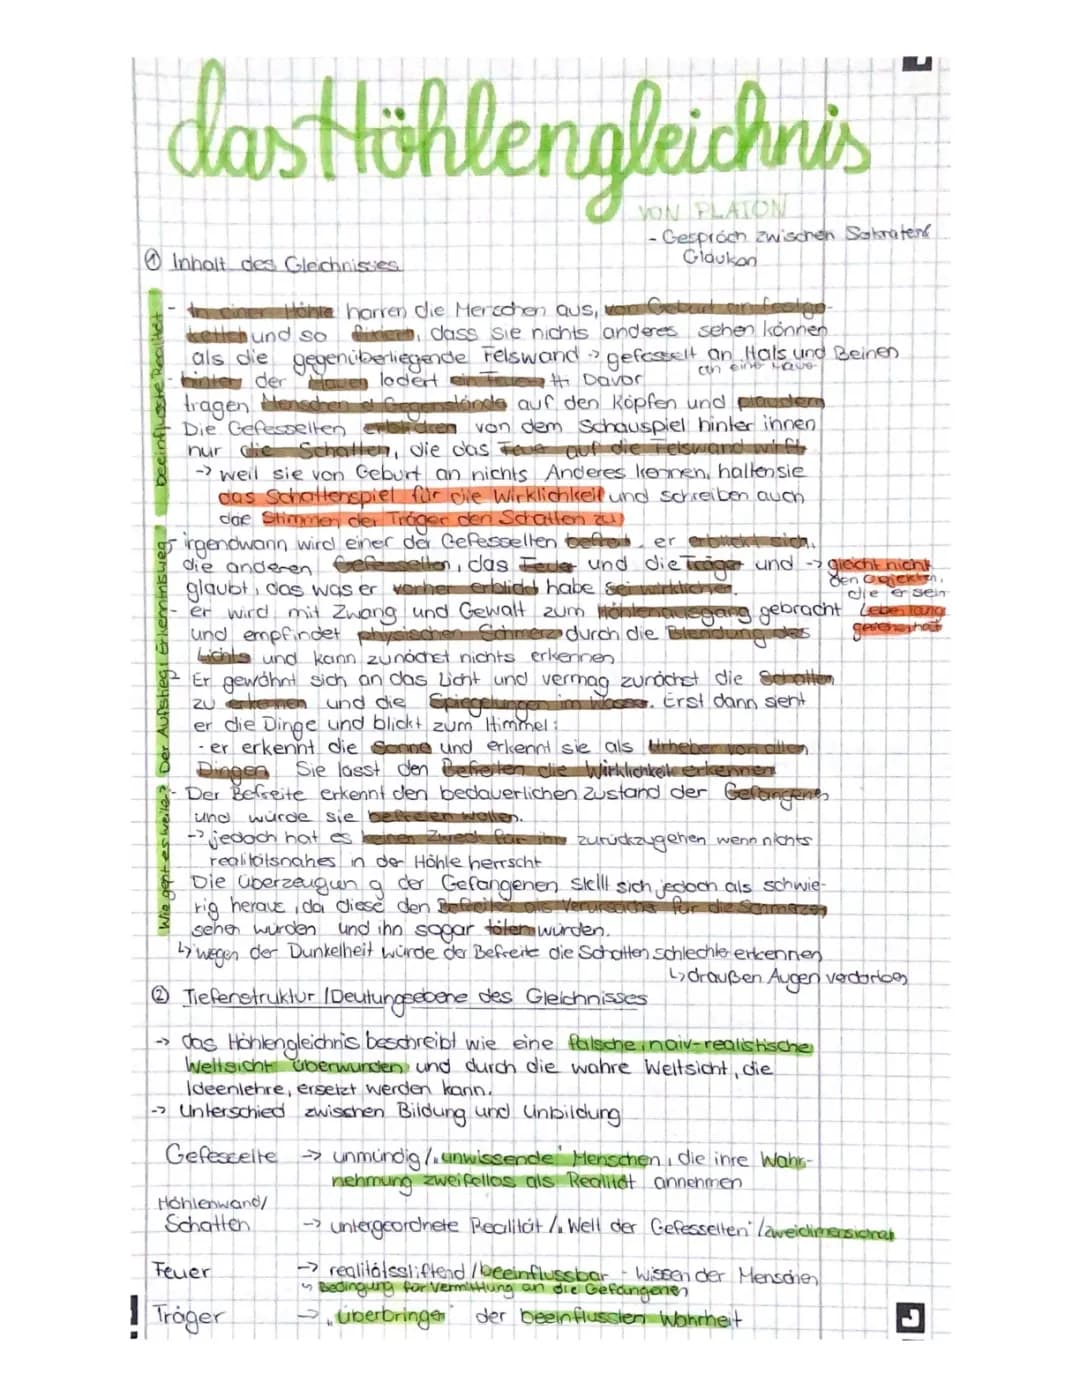 das Höhlengleichnis
VON PLATON
- Gespräch zwischen Sokrates &
Glaukon
① Inhalt des Gleichnisses
- In einer Höhle harren die Menschen aus, von Geburt an festge-
kettet und so fixiert, dass sie nichts anderes sehen können
als die gegenüberliegende Felswand -> gefesselt an Hals und Beinen
an eine Mauer
- hinter der Mauer lodert ein Feuer. Davor
tragen Menschen Gegenstände auf den Köpfen und plaudern
- Die Gefesselten erblicken von dem Schauspiel hinter ihnen
nur die Schatten, die das Feuer auf die Felswand wirft
-> weil sie von Geburt an nichts Anderes kennen, halten sie
das Schattenspiel für die Wirklichkeit und schreiben auch
die Stimmen der Träger den Schatten zu
beeinflusste Realität
- irgendwann wird einer der Gefesselten befreit, er erblickt sich,
die anderen Gefesselten, das Feuer und die Träger und -> gleicht nicht
glaubt, das was er vorher erblickt habe sei wirklicher.
den Objekten,
die er sein
Leben lang
gesehen hat
- er wird mit Zwang und Gewalt zum Höhlenausgang gebracht
und empfindet physischen Schmerz durch die Blendung des
Lichts und kann zunächst nichts erkennen
- Er gewöhnt sich an das Licht und vermag zunächst die Schatten
zu erkennen und die Spiegelungen im Wasser. Erst dann sieht
er die Dinge und blickt zum Himmel:
- er erkennt die Sonne und erkennt sie als Urheber von allen
Dingen Sie lässt den Befreiten die Wirklichkeit erkennen
Der Aufstieg: Erkenntnisweg
- Der Befreite erkennt den bedauerlichen Zustand der Gefangenen
und würde sie befreien wollen.
-> jedoch hat es keinen Zweck für ihn zurückzugehen wenn nichts
realitätsnahes in der Höhle herrscht
Die Überzeugun g der Gefangenen stellt sich jedoch als schwie-
rig heraus, da diese den Befreiten als Verursacher für die Schmerzen
sehen würden und ihn sogar töten würden.
↳ wegen der Dunkelheit würde der Befreite die Schatten schlechter erkennen
↳ draußen Augen verdorben
Wie geht es weiter?
② Tiefenstruktur / Deutungsebene des Gleichnisses
-> das Höhlengleichnis beschreibt wie eine falsche, naiv-realistische
Weltsicht überwunden und durch die wahre Weltsicht, die
Ideenlehre, ersetzt werden kann.
-> Unterschied zwischen Bildung und Unbildung
Gefesselte -> unmündig / „unwissende" Menschen, die ihre Wahr-
nehmung zweifellos als Realität annehmen
Höhlenwand/
Schatten -> untergeordnete Realität / „Welt der Gefesselten" / zweidimensional
Feuer -> realitätsstiftend / beeinflussbar - Wissen der Menschen
↳ Bedingung für Vermittlung an die Gefangenen
! Träger -> „überbringer" der beeinflussten Wahrheit